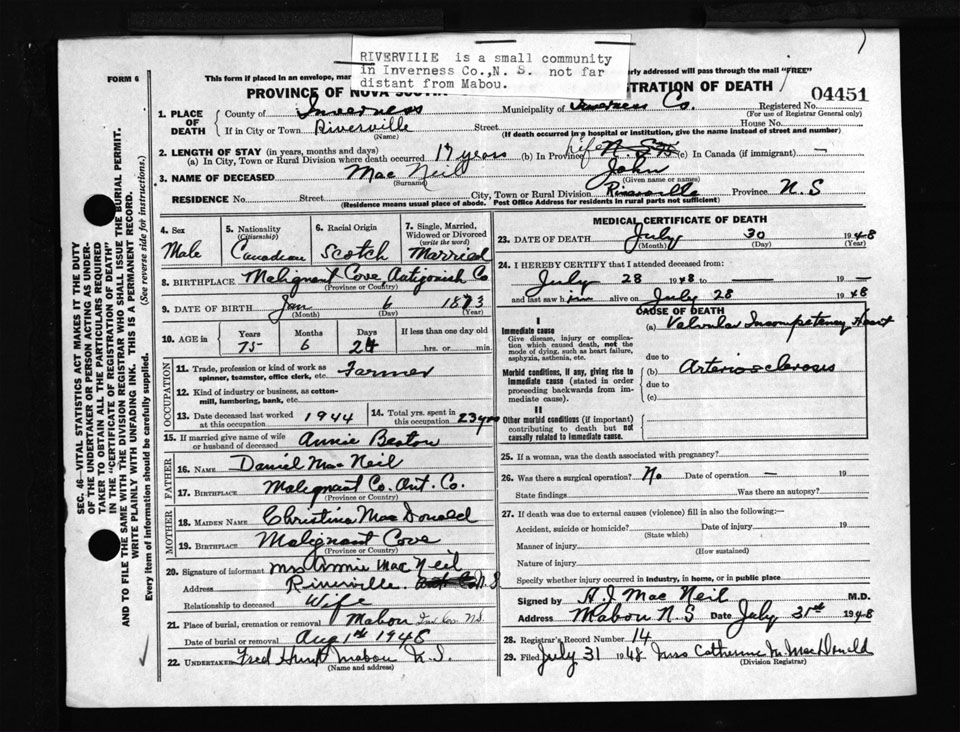 RIVERVILLE is a small community
in Inverness Co.,N. S. not far
distant from Mabou.
FORM 6
This form if placed in an envelope, mar
arly addressed will pass through the mail "FREE"
PROVINCE OF NOVA SCOTIA
STRATION OF DEATH
04451
1. PLACE OF DEATH
County of Inverness
Municipality of Inverness Co.
Registered No.
(For use of Registrar General only)
If in City or Town Riverville
(Name)
Street
House No.
(If death occurred in a hospital or institution, give the name instead of street and number)
2. LENGTH OF STAY (in years, months and days)
(a) In City, Town or Rural Division where death occurred 17 years (b) In Province life N.S. 75 (c) In Canada (if immigrant) —
3. NAME OF DECEASED Mac Neil John
(Surname) (Given name or names)
RESIDENCE No. Street City, Town or Rural Division Riverville Province N. S
(Residence means usual place of abode. Post Office Address for residents in rural parts not sufficient)
4. Sex
Male
5. Nationality
(Citizenship)
Canadian
6. Racial Origin
Scotch
7. Single, Married,
Widowed or Divorced
(write the word)
Married
8. BIRTHPLACE Malignant Cove Antigonish Co
(Province or Country)
9. DATE OF BIRTH Jan 6 1873
(Month) (Day) (Year)
10. AGE in
Years Months Days If less than one day old
75 6 24 hrs. or min.
OCCUPATION
11. Trade, profession or kind of work as
spinner, teamster, office clerk, etc. Farmer
12. Kind of industry or business, as cotton-
mill, lumbering, bank, etc.
13. Date deceased last worked
at this occupation 1944
14. Total yrs. spent in
this occupation 23 yrs
15. If married give name of wife
or husband of deceased Annie Beaton
FATHER
16. NAME Daniel Mac Neil
17. BIRTHPLACE Malignant Co. Ant. Co.
(Province or Country)
MOTHER
18. MAIDEN NAME Christina Mac Donald
19. BIRTHPLACE Malignant Cove
(Province or Country)
20. Signature of informant Mrs Annie Mac Neil
Address Riverville N.S
Relationship to deceased Wife
21. Place of burial, cremation or removal Mabou Inv. Co. N.S.
Date of burial or removal Aug 1st 1948
22. UNDERTAKER Fred Hunt Mabou
(Name and address)
MEDICAL CERTIFICATE OF DEATH
23. DATE OF DEATH July 30 1948
(Month) (Day) (Year)
24. I HEREBY CERTIFY that I attended deceased from:
July 28 1948 to — 19 —
and last saw him alive on July 28 1948
CAUSE OF DEATH
I
Immediate cause
Give disease, injury or complica-
tion which caused death, not the
mode of dying, such as heart failure,
asphyxia, asthenia, etc.
(a) Valvular Incompetency Heart
due to
Morbid conditions, if any, giving rise to
immediate cause (stated in order
proceeding backwards from im-
mediate cause).
(b) Arteriosclerosis
due to
(c)
II
Other morbid conditions (if important)
contributing to death but not
causally related to immediate cause.
25. If a woman, was the death associated with pregnancy?
26. Was there a surgical operation? No Date of operation — 19
State findings Was there an autopsy?
27. If death was due to external causes (violence) fill in also the following:—
Accident, suicide or homicide? Date of injury 19
(State which)
Manner of injury
(How sustained)
Nature of injury
Specify whether injury occurred in industry, in home, or in public place
Signed by A J Mac Neil M.D.
Address Mabou N S Date July 31st 1948
28. Registrar's Record Number 14
29. Filed July 31 1948 Miss Catherine M. Mac Donald
(Division Registrar)
SEC. 46—VITAL STATISTICS ACT MAKES IT THE DUTY
OF THE UNDERTAKER OR PERSON ACTING AS UNDER-
TAKER TO OBTAIN ALL THE PARTICULARS REQUIRED
IN THE "CERTIFICATE OF REGISTRATION OF DEATH"
AND TO FILE THE SAME WITH THE DIVISION REGISTRAR WHO SHALL ISSUE THE BURIAL PERMIT.
WRITE PLAINLY WITH UNFADING INK. THIS IS A PERMANENT RECORD.
Every item of information should be carefully supplied. (See reverse side for instructions.)